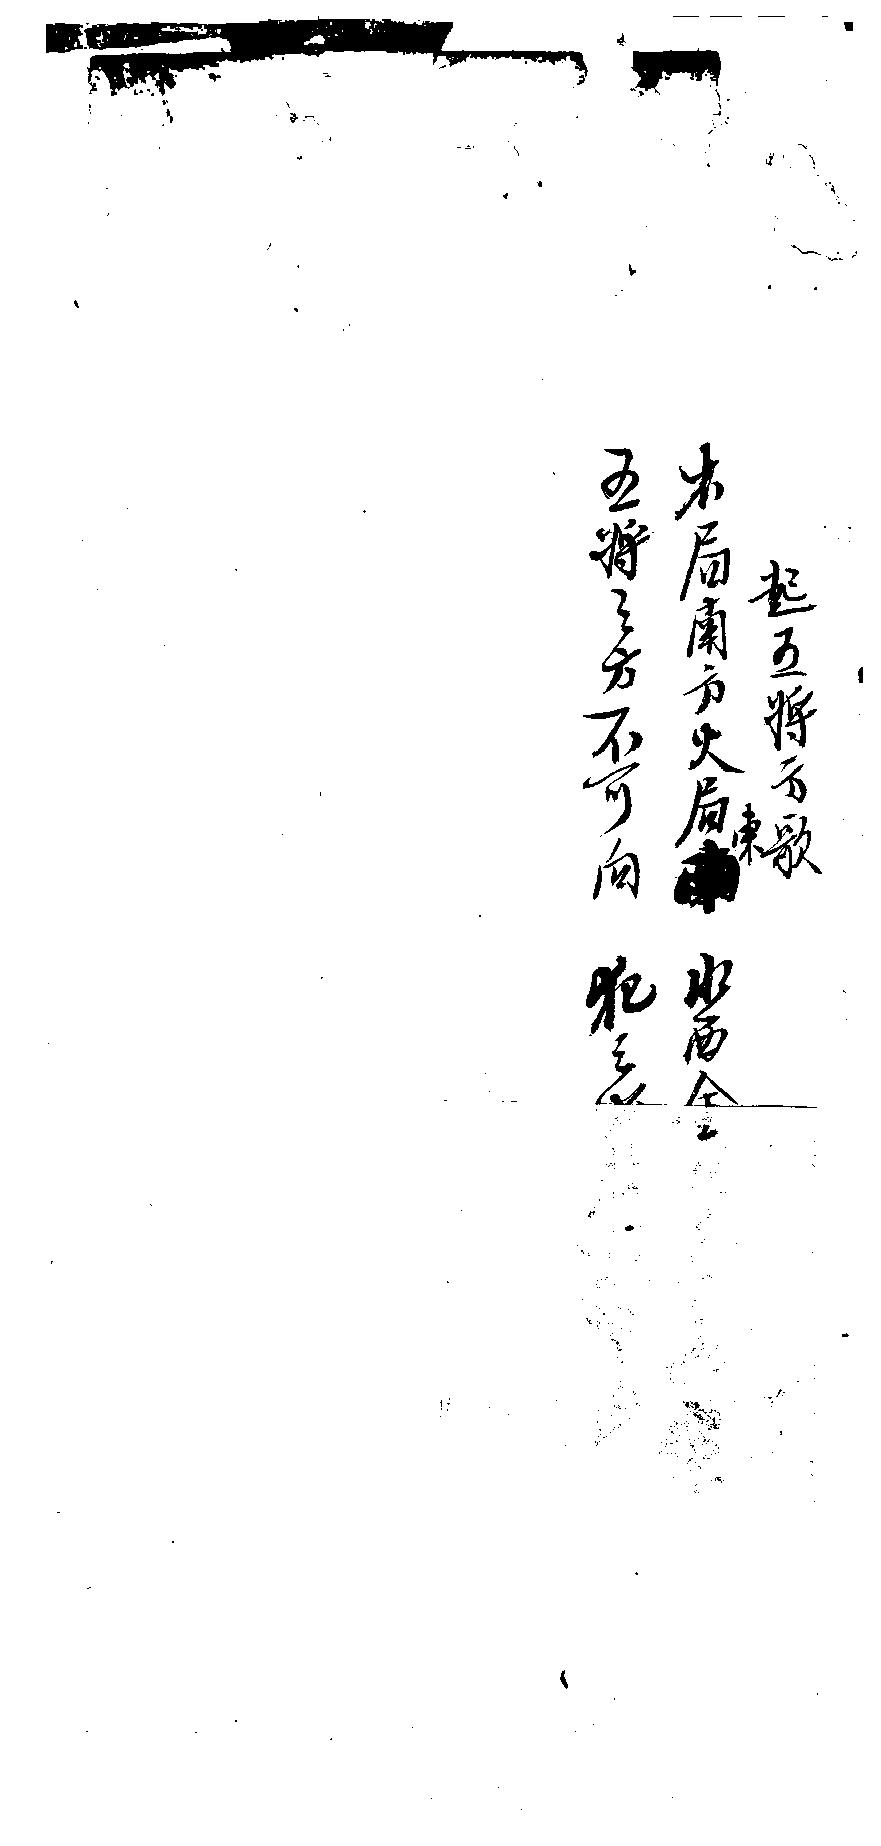 起五將方歌
木局南方火局東 水西金
五將之方不可向 犯之